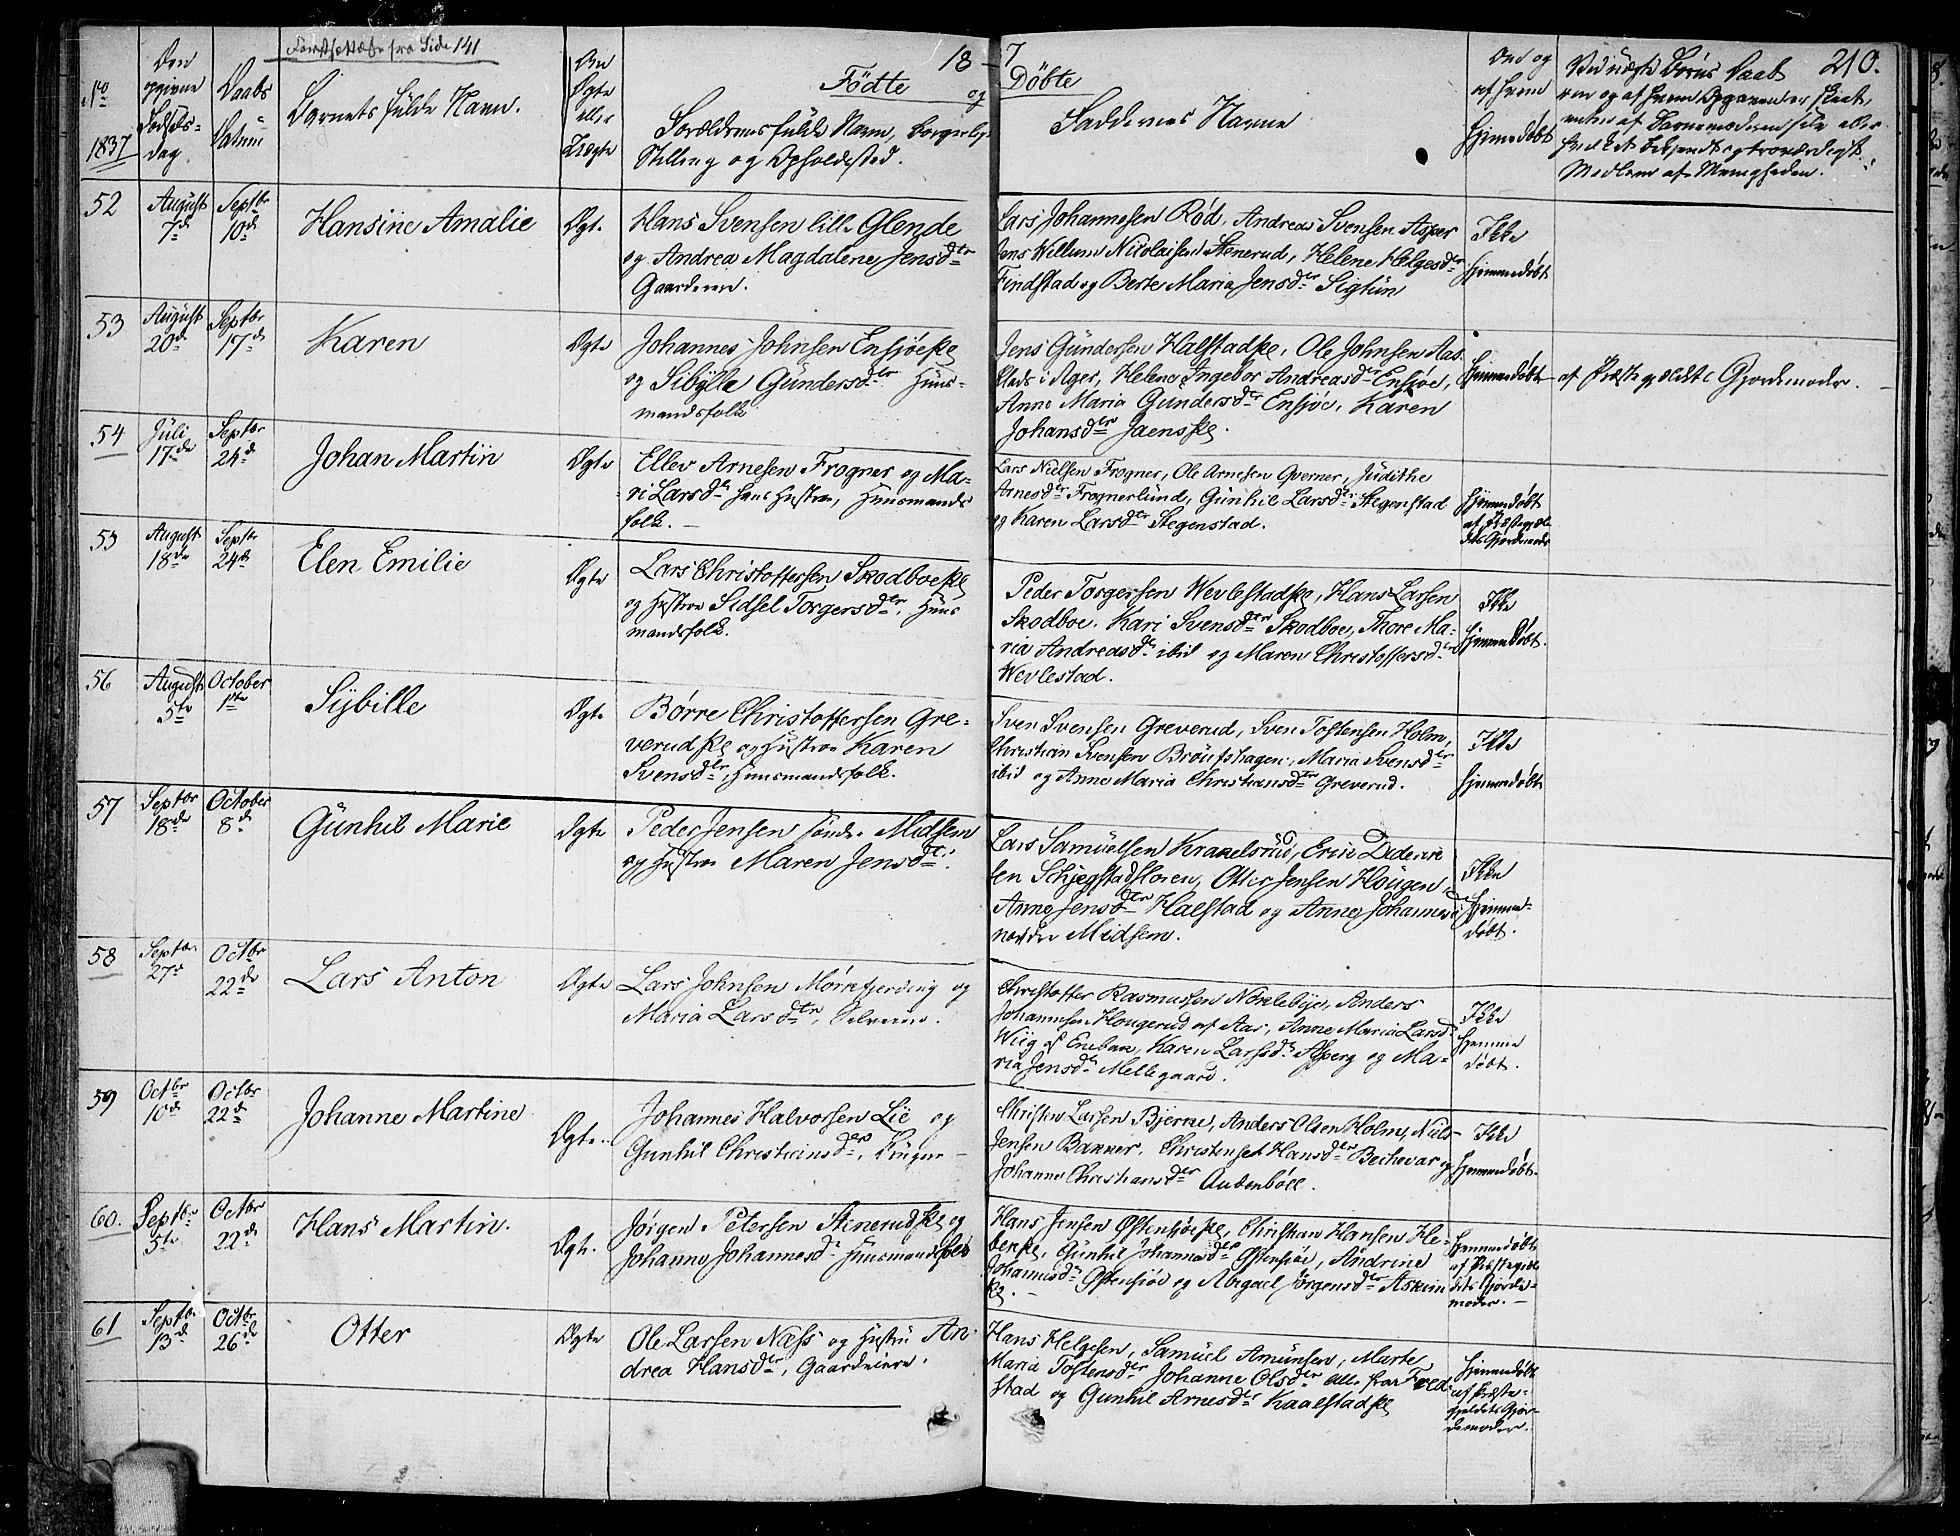 Fortsættelse fra Side 141
18 7
210.
Födte og Döbte
No
1837
Den
opgivne
Fødsels-
dag.
Daabs
Datum
Barnets fulde Navn.
Om
Ægte
eller
Uægte
Foreldrenes fulde Navn, borgerlige
Stilling og Opholdssted.
Faddernes Navne
Om og
af hvem
hjemmedøbt
Medlem af Menigheden.
52
August
7de
Septbr
10de
Hansine Amalie
Ægt.
Hans Svensen lille Glende
og Andrea Magdalene Jensdtr
Gaardeiere.
Lars Johannesen Rød, Andreas Svensen Asper
Jens Willum Nicolaisen Stenerud, Helene Helgesdtr
Findstad og Berte Maria Jensdtr Sigtun
Ikke
hjemmedøbt
53
August
20de
Septbr
17de
Karen
Ægte
Johannes Johnsen Ensjöeske
og Sibylle Gundersdtr Huus-
mandsfolk
Jens Gundersen Halstadske, Ole Johnsen Aas
Stads i Ager, Helene Ingebor Andreasdtr Ensjöe,
Anne Maria Gundersdtr Ensjöe, Karen
Johansdtr Jaenske.
Hjemmedøbt
af Præstegjeldets Gjordemoder.
54
Juli
17de
Septbr
24de
Johan Martin
Ægte
Ellev Arnesen Frogner og Ma-
ri Larsdtr hans Hustru, Huusmands
folk.
Lars Nielsen Frogner, Ole Arnesen Qverner, Judithe
Arnesdtr Frognerlund, Gunhil Larsdtr Stegenstad
og Karen Larsdtr Stegenstad.
Hjemmedøbt
af Præstegjel-
dets Gjordemoder
55
August
18de
Septbr
24de
Elen Emilie
Ægte
Lars Christoffersen Skodboeske
og Hustru Sidsel Torgersdtr, Huus
mandsfolk.
Peder Torgersen Wevlestadske, Hans Larsen
Skodboe, Kari Svensdtr Skodboe, Thore Ma-
ria Andreasdtr ibid og Maren Christoffersdtr
Wevlestad.
Ikke
hjemmedøbt.
56
August
5te
October
1ste
Sybille
Ægte
Børre Christoffersen Gre-
verudske og Hustru Karen
Svensdtr, Huusmandsfolk.
Sven Svensen Greverud, Sven Tostensen Holm,
Christian Svensen Bröutshagen, Maria Svensdtr
ibid og Anne Maria Christiansdtr Greverud.
Ikke
hjemmedøbt.
57
Septbr
18de
October
8de
Gunhil Marie
Ægte
Peder Jensen søndre Midsem
og Hustru Maren Jensdtr.
Lars Samuelsen Krakelsrud, Erik Dideric
sen Schjegstadfloren, Otter Jensen Hougen,
Anne Jensdtr Halstad og Anne Johannesd
nordre Midsem.
Ikke
hjemme-
døbt.
58
Septbr
27de
Octbr
22de
Lars Anton
Ægte
Lars Johnsen Mörkfjerding og
Maria Larsdtr, Selveiere.
Christoffer Rasmussen Nöklebye, Anders
Johannesen Hougerud af Aas, Anne Maria Larsd
Wiig af Enebak, Karen Larsdtr Asperg og Ma-
ria Jensdtr Mellegaard.
Ikke
hjemme
døbt.
59
Octbr
10de
Octbr
22de
Johanne Martine
Ægte.
Johannes Halvorsen Lie og
Gunhil Christiansdtr,
Christen Larsen Bjerke, Anders Olsen Holm, Niels
Jensen Bakker, Christense Hansdtr Beckevar og
Johanne Christiansdtr Audenböll.
Ikke
hjemmedøbt.
60.
Septbr
5te
Octbr
22de
Hans Martin.
Ægte.
Jørgen Petersen Stenerudske og
Johanne Johannesdtr Huusmandsfolk
Hans Jensen Østensjøeske, Christian Hansen He-
bekske, Gunhil Johannesdtr Østensjøe, Andrine
Johannesdtr Østensjøe og Abigael Jörgensdtr Askim
ske.
Hjemmedøbt
af Præstegjel
dets Gjorde-
moder.
61
Septbr
13de
Octbr
26de
Otter
Ægte
Ole Larsen Næss og Hustru An-
drea Hansdtr, Gaardeiere.
Hans Helgesen, Samuel Amunsen, Marte
Maria Tostensdtr, Johanne Olsdtr alle fra Fved
stad og Gunhil Arnesdtr Kaalstadske
Hjemmedøbt
af Præste-
gjeldets Gjor-
demoder.